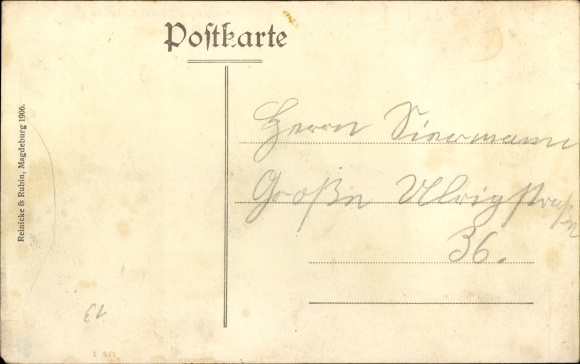 Postkarte
Reinicke & Rubin, Magdeburg 1906.
Herrn Siermann
Große Ulrichstraße
36.
13